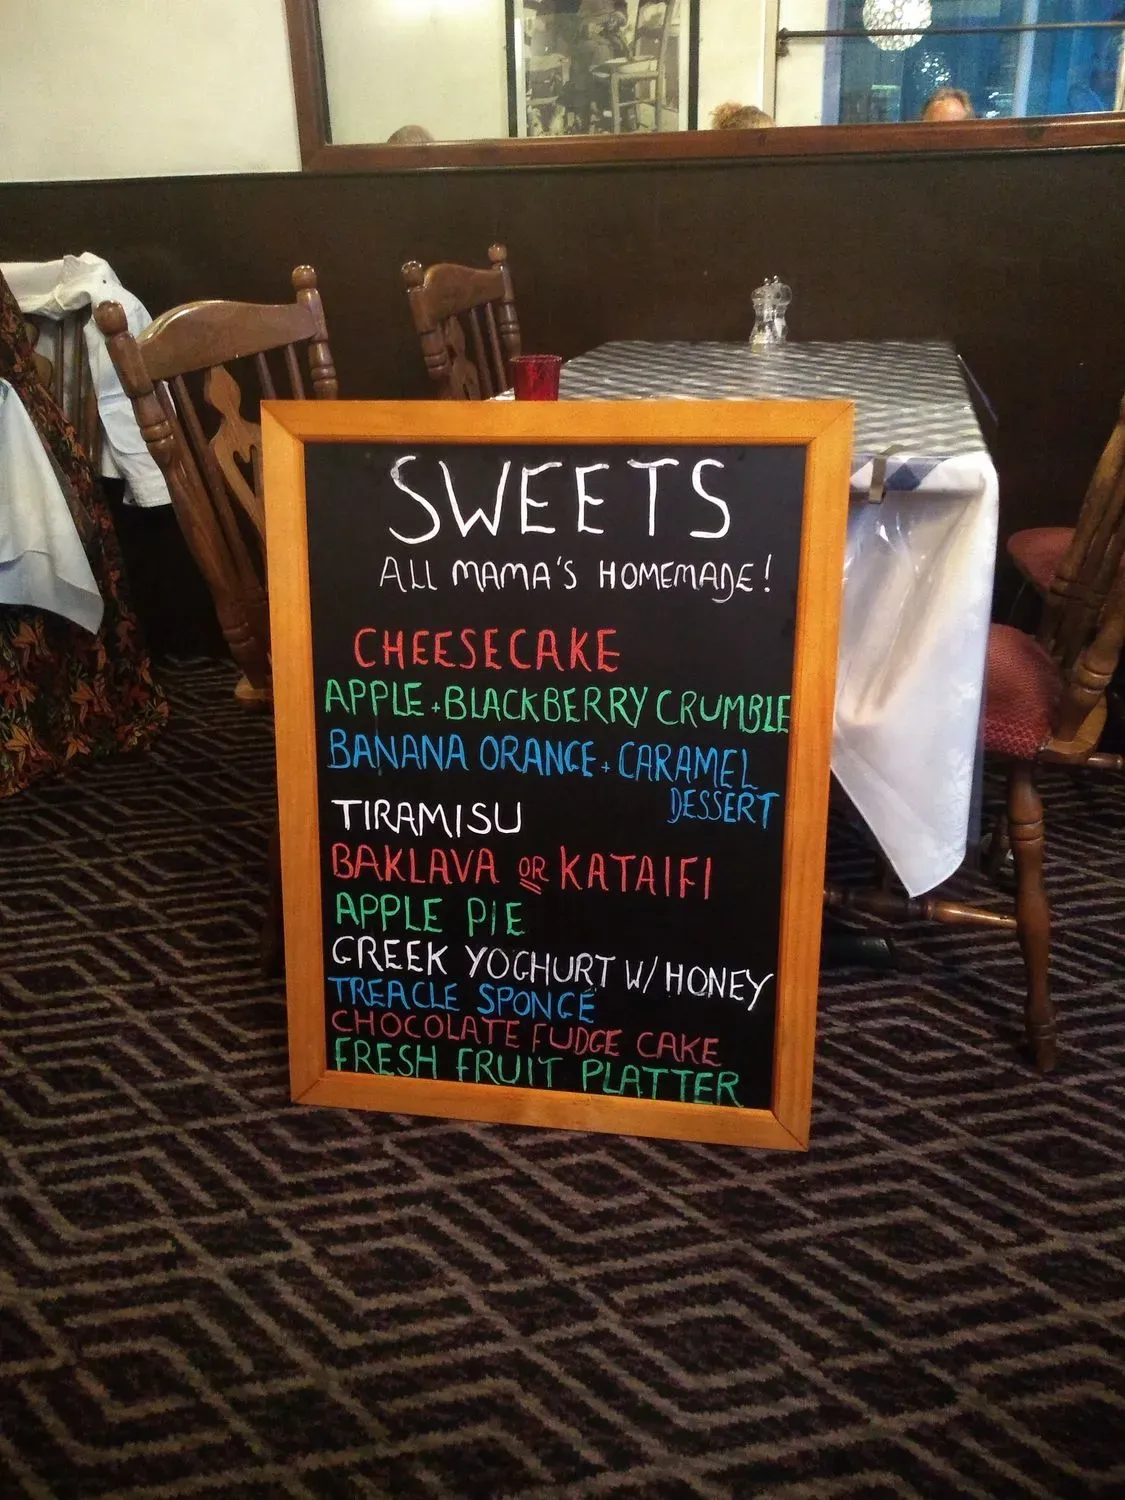 SWEETS
ALL MAMA'S HOMEMADE!
CHEESECAKE
APPLE + BLACKBERRY CRUMBLE
BANANA ORANGE + CARAMEL
DESSERT
TIRAMISU
BAKLAVA OR KATAIFI
APPLE PIE
GREEK YOGHURT W/ HONEY
TREACLE SPONGE
CHOCOLATE FUDGE CAKE
FRESH FRUIT PLATTER